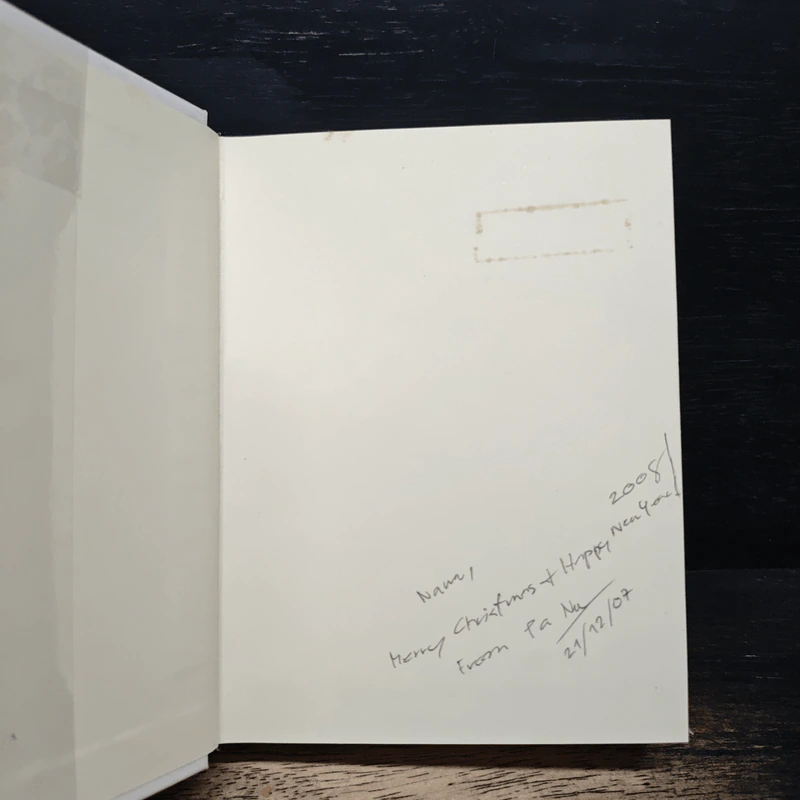 Nana,
Merry Christmas + Happy New Year
2008/
From Pa Nu
21/12/07